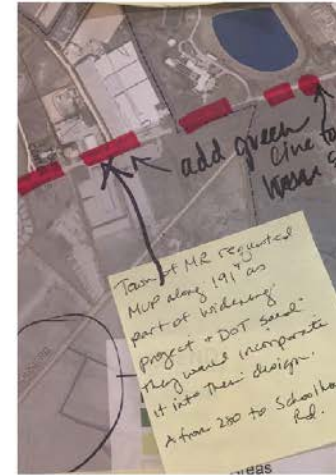 add green
line to
Town of MR requested
MUP along 191 as
part of widening
project + DOT said
they would incorporate
it into their design.
from 280 to Schoolho
Rd.
eas